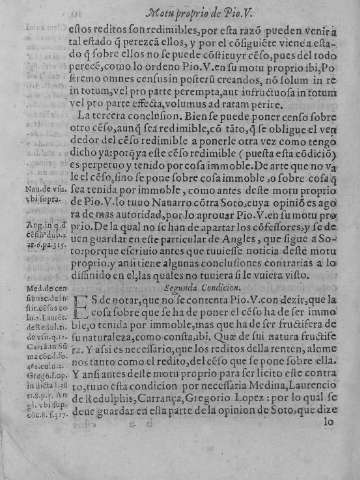 Motu proprio de Pio. V.
estos reditos son redimibles, por esta razõ pueden venir a
tal estado q̃ perezcã ellos, y por el cõsiguiẽte vienẽ a esta-
do q̃ sobre ellos no se puede cõstituyr cẽso, pues del todo
perecẽ, como lo ordeno Pio. V. en su motu proprio ibi, Po
stremo omnes census in posterũ creandos, nõ solum in re
in totum, vel pro parte perempta, aut infructuosa in totum
vel pro parte effecta, volumus ad ratam perire.
La tercera conclusion. Bien se puede poner censo sobre
otro cẽso, aunq̃ sea redimible, cõ tãto, q̃ se obligue el ven
dedor del cẽso redimible a ponerle otra vez como tengo
dicho ya: porq̃ ya este cẽso redimible (puesta esta cõdiciõ)
es perpetuo y tenido por cosa immoble. De arte que no va-
le el cẽso, sino se pone sobre cosa immoble, o sobre cosa q̃
sea tenida por immoble, como antes deste motu proprio
de Pio. V. lo tuuo Nauarro cõtra Soto, cuya opiniõ es ago
ra de mas autoridad, por lo aprouar Pio. V. en su motu pro
prio. De la qual no se han de apartar los cõfessores, y se de
uen guardar en este particular de Angles, que sigue a So-
to, porque escriuio antes que tuuiesse noticia deste motu
proprio, y ansi tiene algunas conclusiones contrarias a lo
difinido en el, las quales no tuuiera si le vuiera visto.
Nau. de vsu.
vbi supra.
Ang. in q. d
Segunda Condicion.
ES de notar, que no se contenta Pio. V. con dezir, que la
cosa sobre que se ha de poner el cẽso ha de ser immo
ble, o tenida por immoble, mas que ha de ser fructifera de
su naturaleza, como consta, ibi. Quæ de sui natura fructife
ra. Y assi es necessario, que los reditos della renten, alome
nos tanto como el redito, del cẽso que se pone sobre ella.
Y ansi antes deste motu proprio para ser licito este contra
to, tuuo esta condicion por necessaria Medina, Laurencio
de Redulphis, Carrança, Gregorio Lopez: por lo qual se
deue guardar en esta parte de la opinion de Soto, que dize
lo